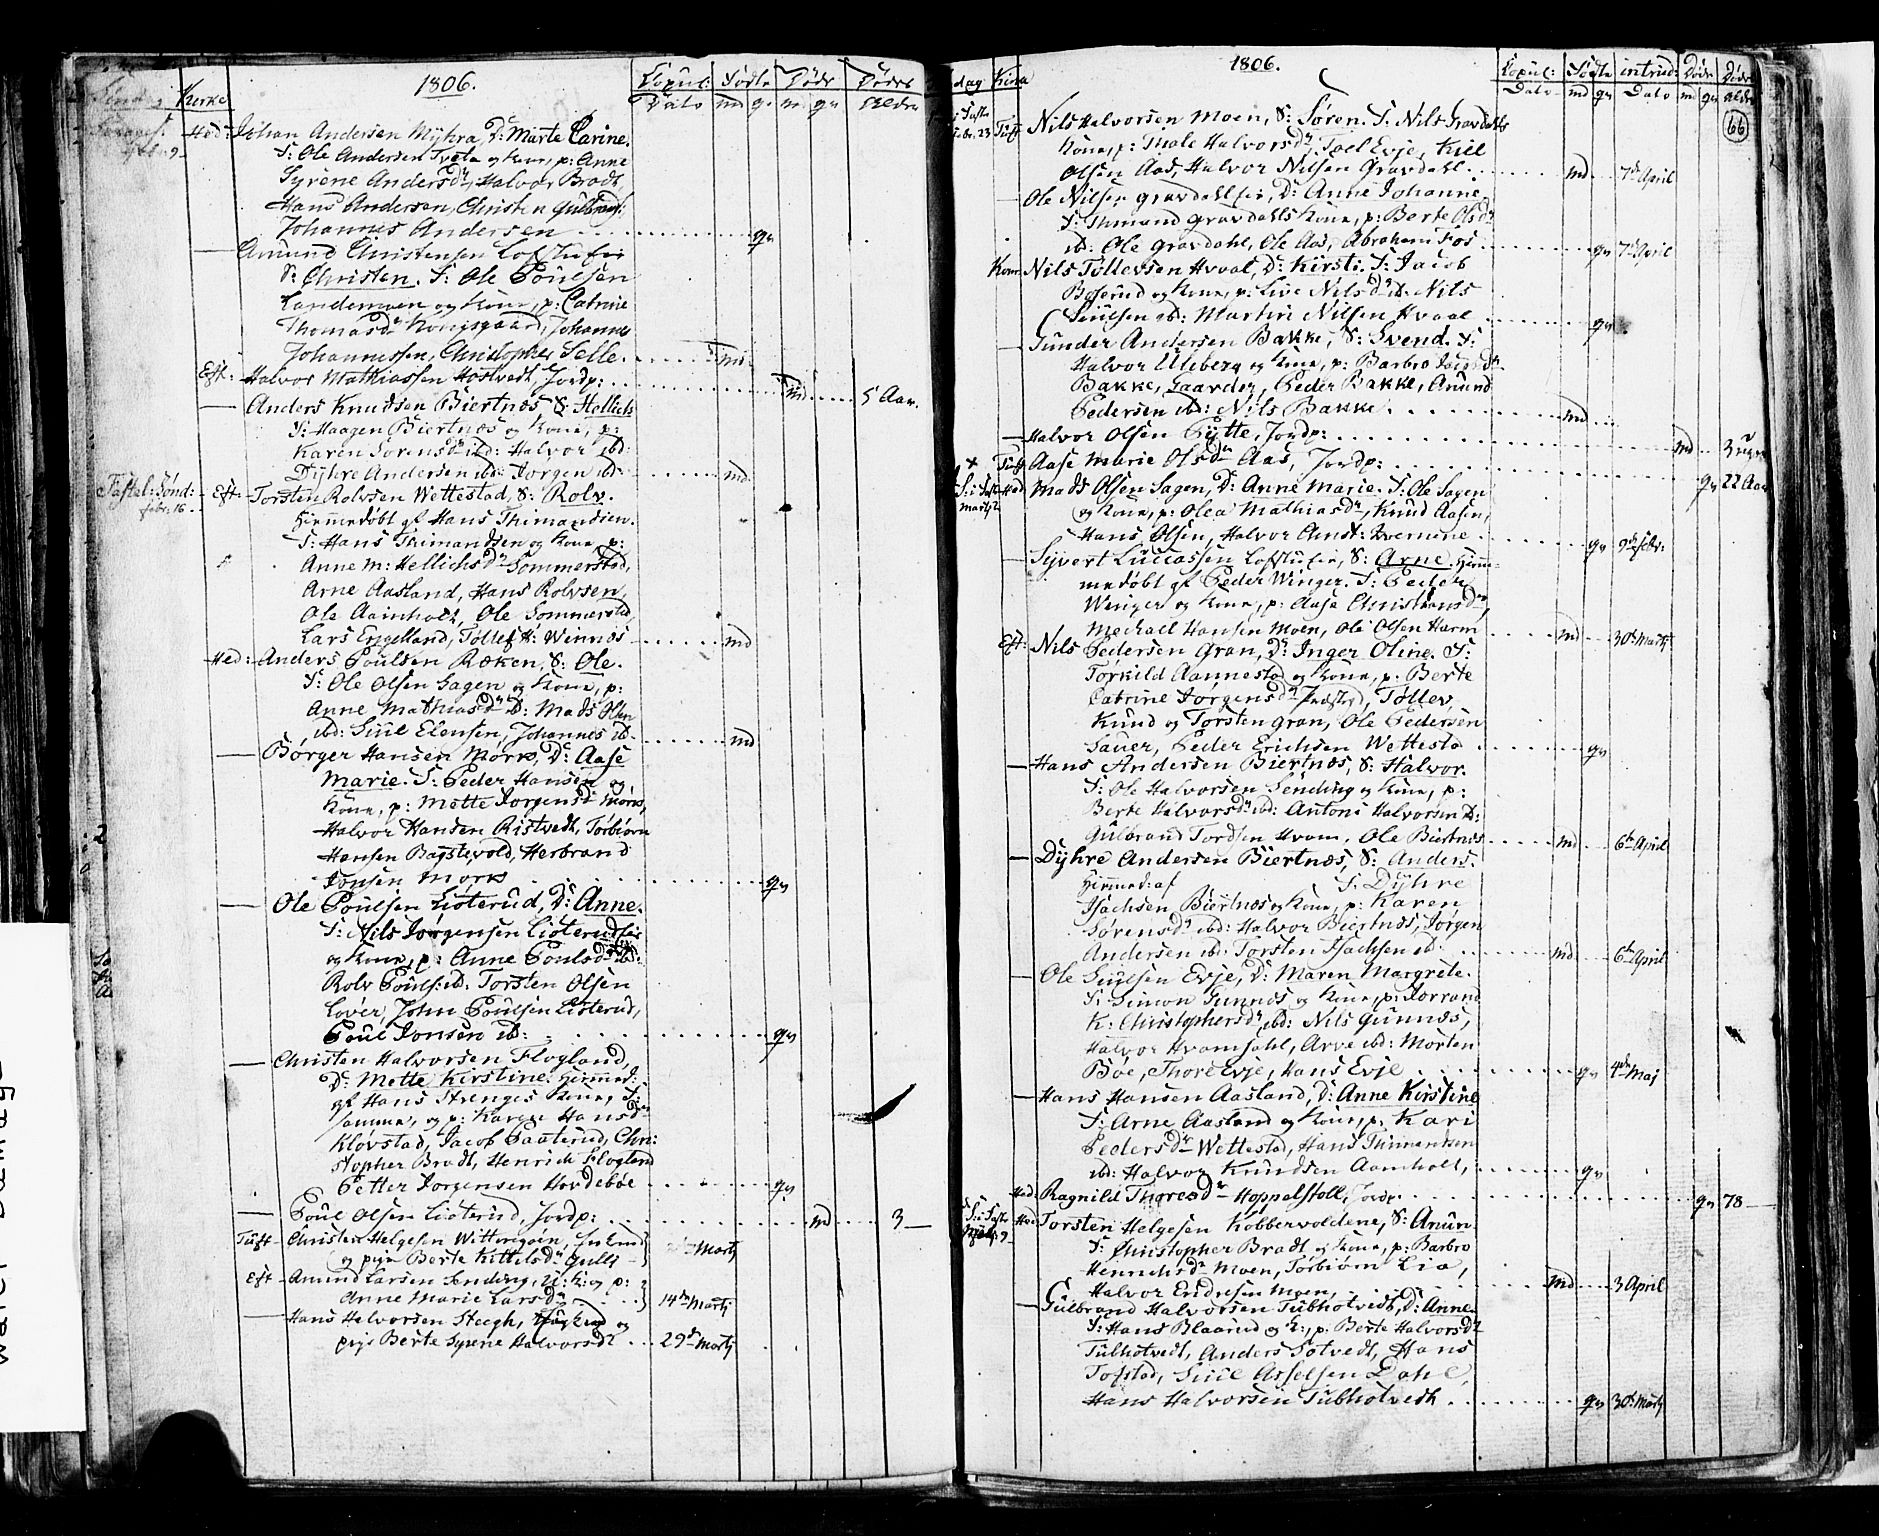 1806.
Kierke
Copul: Dato
Fødte md qv
Døde md qv
Dødes Alder
Hed: Johan Andersen Myhra, D: Marte Carine.
F: Ole Andersen Tveta og Kone, p: Anne
Syrene Andersdr, Halvor Bradt,
Hans Andersen, Christen Gulbrands:
Johannes Andersen qv
Amund Christensen Lofstufei
S: Christen. F: Ole Poulsen
Landemoen og Kone, p: Catrine
Thomasdr Kongsgaard, Johannes
Johannessen, Christopher Selle. md
Eft: Halvor Mathiassen Hostvedt, Jordp: md 5 Aar.
Anders Knudsen Biertnæs, S: Hellich
F: Haagen Biertnæs og Kone, p:
Karen Sørensdr ibd: Halvor ibd:
Dyhre Andersen ibd: Jørgen ibd: md
Fastel: Sønd: febr: 16
Eft: Torsten Rolvsen Wettestad, S: Rolv.
Hiemmedøbt af Hans Thimandsen.
F: Hans Thimandsen og Kone, p:
Anne M: Hellichsdr Sommerstad,
Arne Aasland, Hans Rolvsen,
Ole Aamholt, Ole Sommerstad,
Lars Engelland, Tollef H: Wennæs md
Hed: Anders Poulsen Ræken, S: Ole.
F: Ole Olsen Sagen og Kone, p:
Anne Mathiasdr ib: Mads Olsen
ibd: Siul Elensen, Johannes ib. md
Børger Hansen Mørk, D: Aase
Marie. F: Peder Hansen og
Kone, p: Mette Jørgensdr Mørk,
Halvor Hansen Ristvedt, Torbiørn
Hansen Bagstevold, Herbrand
Jonsen Mørk qv
Ole Poulsen Lioterud, D: Anne.
F: Nils Jørgensen Lioterudfei
og Kone, p: Anne Poulsdr ibd:
Rolv Pouls: ibd: Torsten Olsen
Lover, John Poulsen Lioterud,
Poul Jonsen ibd: qv
Christen Halvorsen Flogland,
D: Mette Kirstine. Hiemmed:
af Hans Strenges Kone, F:
samme, og p: Karen Hansdr
Klovstad, Jacob Paaterud, Chri:
stopher Bradt, Henrich Flogland
Petter Jørgensen Hovdebøe qv
Poul Olsen Lioterud, Jordp: md 3
Tuft Christen Helgesen Wittingen,
og pige Berte Kittilsdr Gulli Martj
Eft Amund Larsen Sending, U: K: og p:
Anne Marie Larsdr 14de Martj
Hans Halvorsen Steegh, og
pige Berte Syrene Halvorsdr 29de Martj
1806.
dag Kirke
Copul: Dato
Fødte md qv
introd: Dato
Døde md qv
Døde Alder
66
febr. 23 Tuft Nils Halvorsen Moen, S: Søren. F: Nils Gravdahls
Kone, p: Thale Halvorsdr, Joel Evje, Kiel
Olsen Aas, Halvor Nilsen Gravdahl. md 7de April
Ole Nilsen Gravdahlfei, D: Anne Johanne.
F: Thimand Gravdahls Kone, p: Berte Olsdr
ib: Ole Gravdahl, Ole Aas, Abraham Fos qv 7de April
Kom: Nils Tollevsen Hvaal, D: Kirsti. F: Jacob
Boserud og Kone, p: Live Nilsdr ib: Nils
Siulsen ibd: Martin Nilsen Hvaal qv
Gunder Andersen Bakke, S: Svend. F:
Halvor Ulleberg og Kone, p: Barbro
Bakke, Gaarder, Peder Bakke, Anund
Pedersen ibd: Nils Bakke md
Halvor Olsen Pytte, Jordp: md 3 uger
Tuft Aase Marie Olsdr Aas, Jordp: qv 22 Aar
S: i Faste Martj 2
Hed Mads Olsen Sagen, D: Anne Marie. F: Ole Sagen
og Kone, p: Olea Mathiasdr, Knud Aasen,
Hans Olsen, Halvor Amst: Kvernene qv 9de febr:
Syvert Luccassen Lofstufei, S: Arne. Hiem-
medøbt af Peder Winger. F: Peder
Winger og Kone, p: Aase Christiansdr,
Mechael Hansen Moen, Ole Olsen Harm md 30de Martj
Eft: Nils Pedersen Gran, D: Inger Oline. F:
Torkild Aannestad og Kone, p: Berte
Catrine Jørgensdr Præstrud, Tollev,
Knud og Torsten Gran, Ole Pedersen
Sauer, Peder Erichsen Wettestad qv
Hans Andersen Biertnæs, S: Halvor.
F: Ole Halvorsen Sending og Kone, p:
Berte Halvorsdr ibd: Antoni Halvorsen ib:
Gulbrand Tordsen Hvam, Ole Biertnæs md 6te April
Dyhre Andersen Biertnæs, S: Anders.
Hiemmed: af F: Dyhre
Isachsen Biertnæs og Kone, p: Karen
Sørensdr ibd: Halvor Biertnæs, Jørgen
Andersen ib: Torsten Isachsen ib: md 6te April
Ole Siulsen Evje, D: Maren Margrete.
F: Simon Gunnæs og Kone, p: Jorrand
K: Christophersdr ibd: Nils Gunnæs,
Halvor Hvamdahl, Arve ibd: Morten
Bøe, Thore Evje, Hans Evje qv 4de Maj
Hans Hansen Aasland, D: Anne Kirstine
F: Arne Aasland og Kone, p: Kari
Pedersdr Wettestad, Hans Thimandsen
ibd: Halvor Knudsen Aamholt, qv
Hed: Ragnild Thoresdr Hoppelstoll, Jordp: qv 78
S: i Faste Martj: 9
Hed Torsten Helgesen Kobbervoldene, S: Anun.
F: Christopher Bradt og Kone, p: Barbro
Henrichsdr Moen, Torbiørn Lia,
Halvor Endresen Moen, md 3 April
Gulbrand Halvorsen Tubhotvedt, D: Anne.
F: Hans Blaarud og K:, p: Berte Halvorsdr
Tubhotvedt, Anders Sotvedt, Hans
Tofstad, Siul Asselsen Dahl,
Hans Halvorsen Tubhotvedt qv 30de Martj